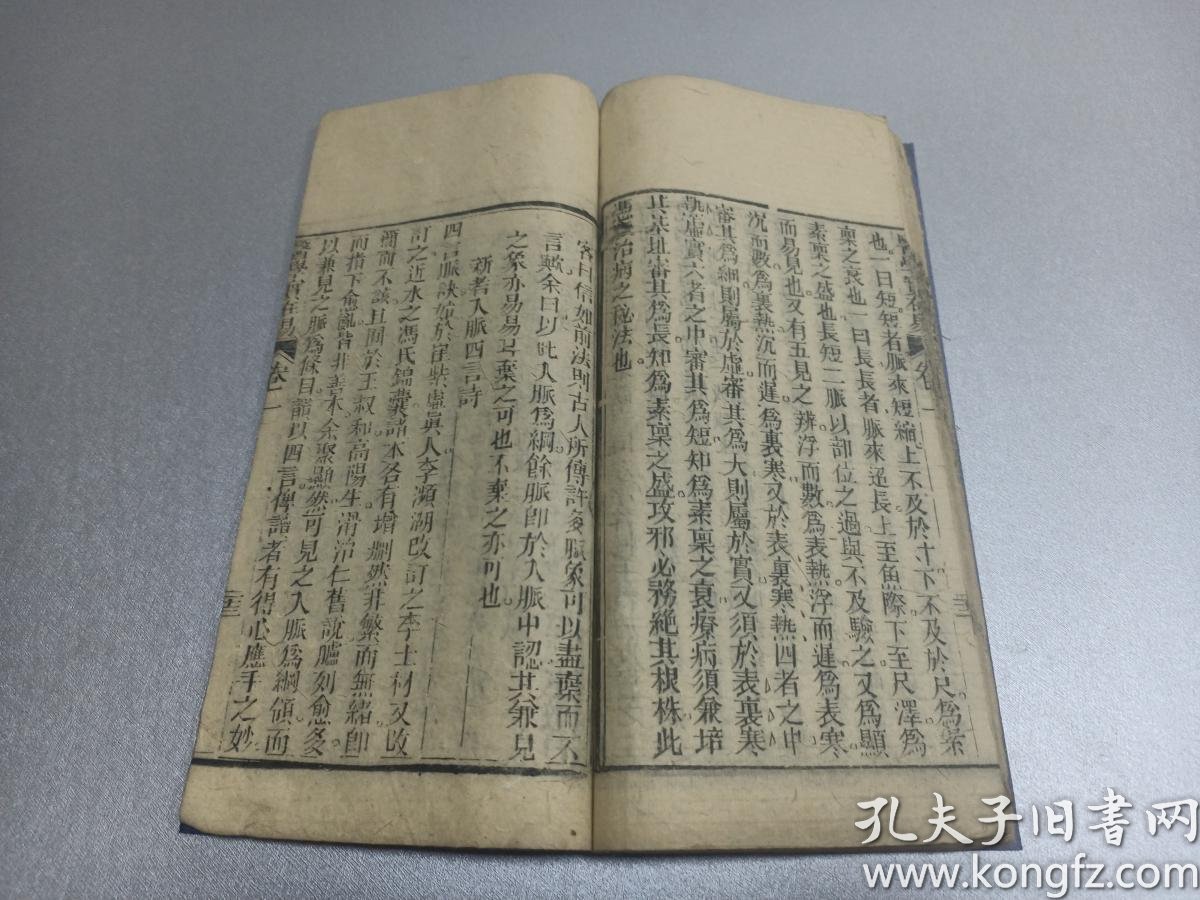 也一曰短短者脈來短縮上不及於寸下不及於尺為素
稟之衰也一曰長長者脈來迢長上至魚際下至尺澤為
素稟之盛也長短二脈以部位之過與不及驗之又為顯
而易見也又有五見之辨浮而數為表熱浮而遲為表寒
沉而數為裏熱沉而遲為裏寒又於表裏寒熱四者之中
審其為細則屬於虛審其為大則屬於實又須於表裏寒
熱虛實六者之中審其為短知為素稟之衰療病須兼培
其基址審其為長知為素稟之盛攻邪必務絕其根株此
治病之秘法也
客曰信如前法則古人所傳許多脈象可以盡棄而不
言歟余曰以此八脈為綱餘脈即於八脈中認其兼見
之象亦易易耳棄之可也不棄之亦可也
新著八脈四言詩
四言脈訣始於崔紫虛真人李瀕湖改訂之李士材又改
訂之近水之馮氏錦囊諸本各有增刪然非繁而無緒即
簡而不該且囿於王叔和高陽生滑伯仁舊說臚列愈多
而指下愈亂皆非善本余聚顯然可見之八脈為綱領而
以兼見之脈為條目韻以四言俾讀者有得心應手之妙
醫學實在易
卷一
二三
孔夫子旧书网
www.kongfz.com